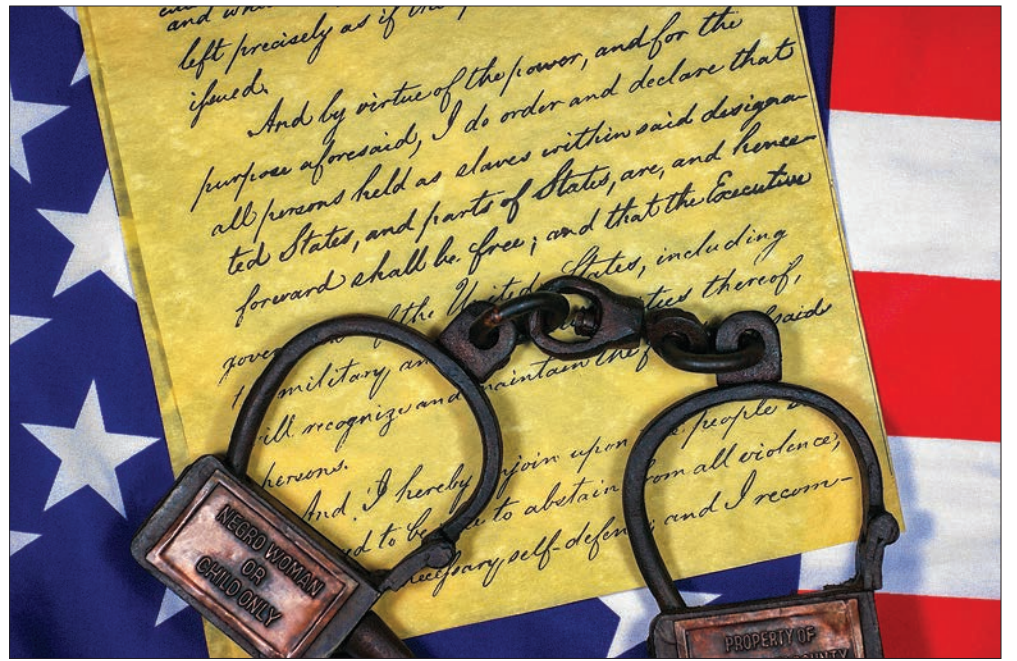 and
left precisely as if
iſsued.
And by virtue of the power, and for the
purpose aforesaid, I do order and declare that
all persons held as slaves within said designa-
ted States, and parts of States, are, and hence-
forward shall be free; and that the Executive
of the United States, including
military, thereof,
recognize and maintain the said
persons.
And I hereby upon people
to be to abstain from all violence,
neceſsary self-defence; and I recom-
NEGRO WOMAN
OR
CHILD ONLY
PROPERTY OF
COUNTY